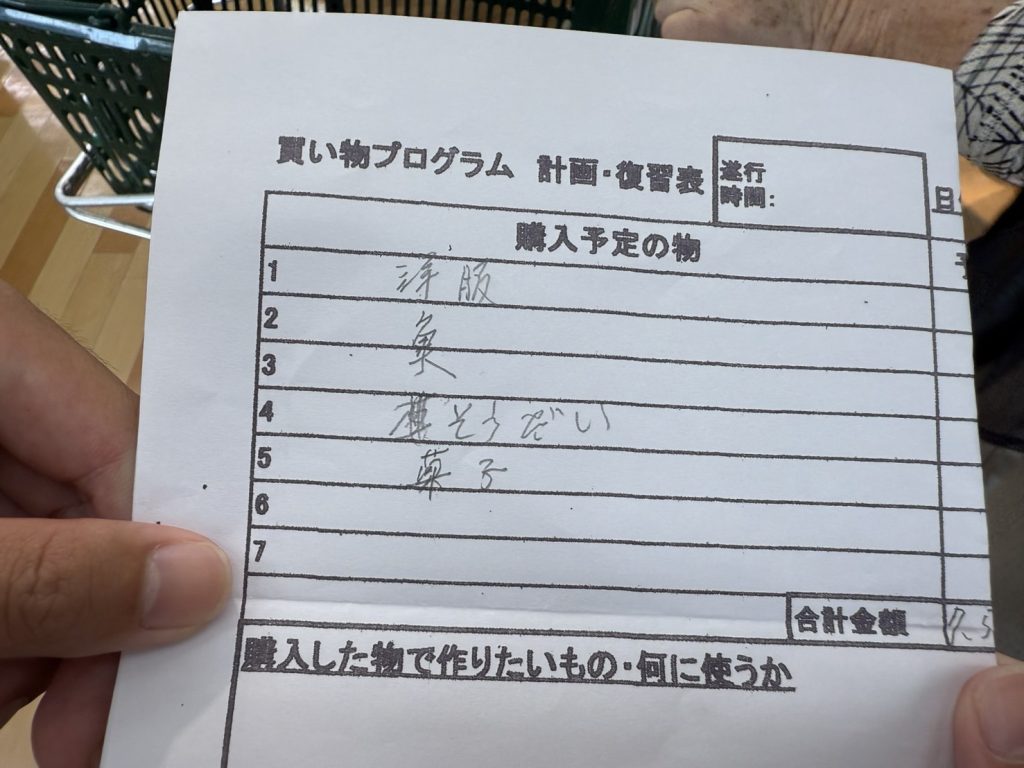 買い物プログラム 計画・復習表
遂行
時間:
日
購入予定の物
予
1 洋服
2
3 魚
4 そうざい
5 菓子
6
7
合計金額
購入した物で作りたいもの・何に使うか